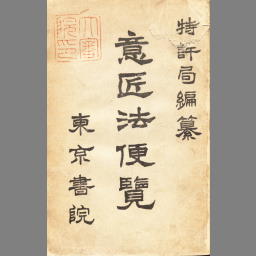 特許局編纂
意匠法便覽
東京書院